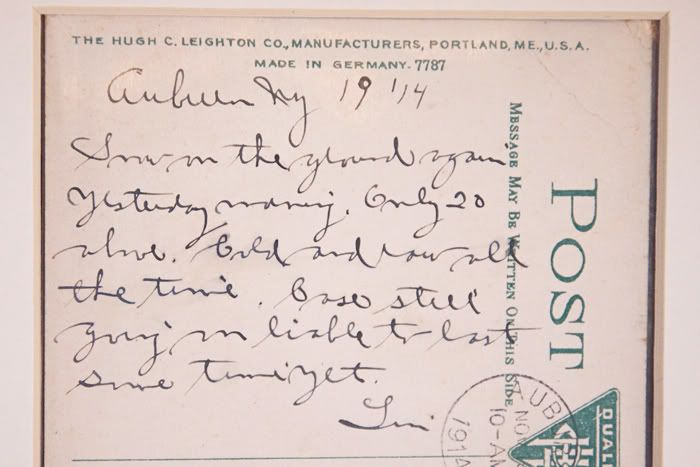 THE HUGH C. LEIGHTON CO., MANUFACTURERS, PORTLAND, ME., U.S.A.
MADE IN GERMANY. 7787
Auburn Ny 19 '14
Snow on the ground again
yesterday morning. Only 20
above. Cold and raw all
the time. Case still
going on liable to last
some time yet.
MESSAGE MAY BE WRITTEN ON THIS SIDE
POST
AUB
NOV
10-AM
1914
QUAL